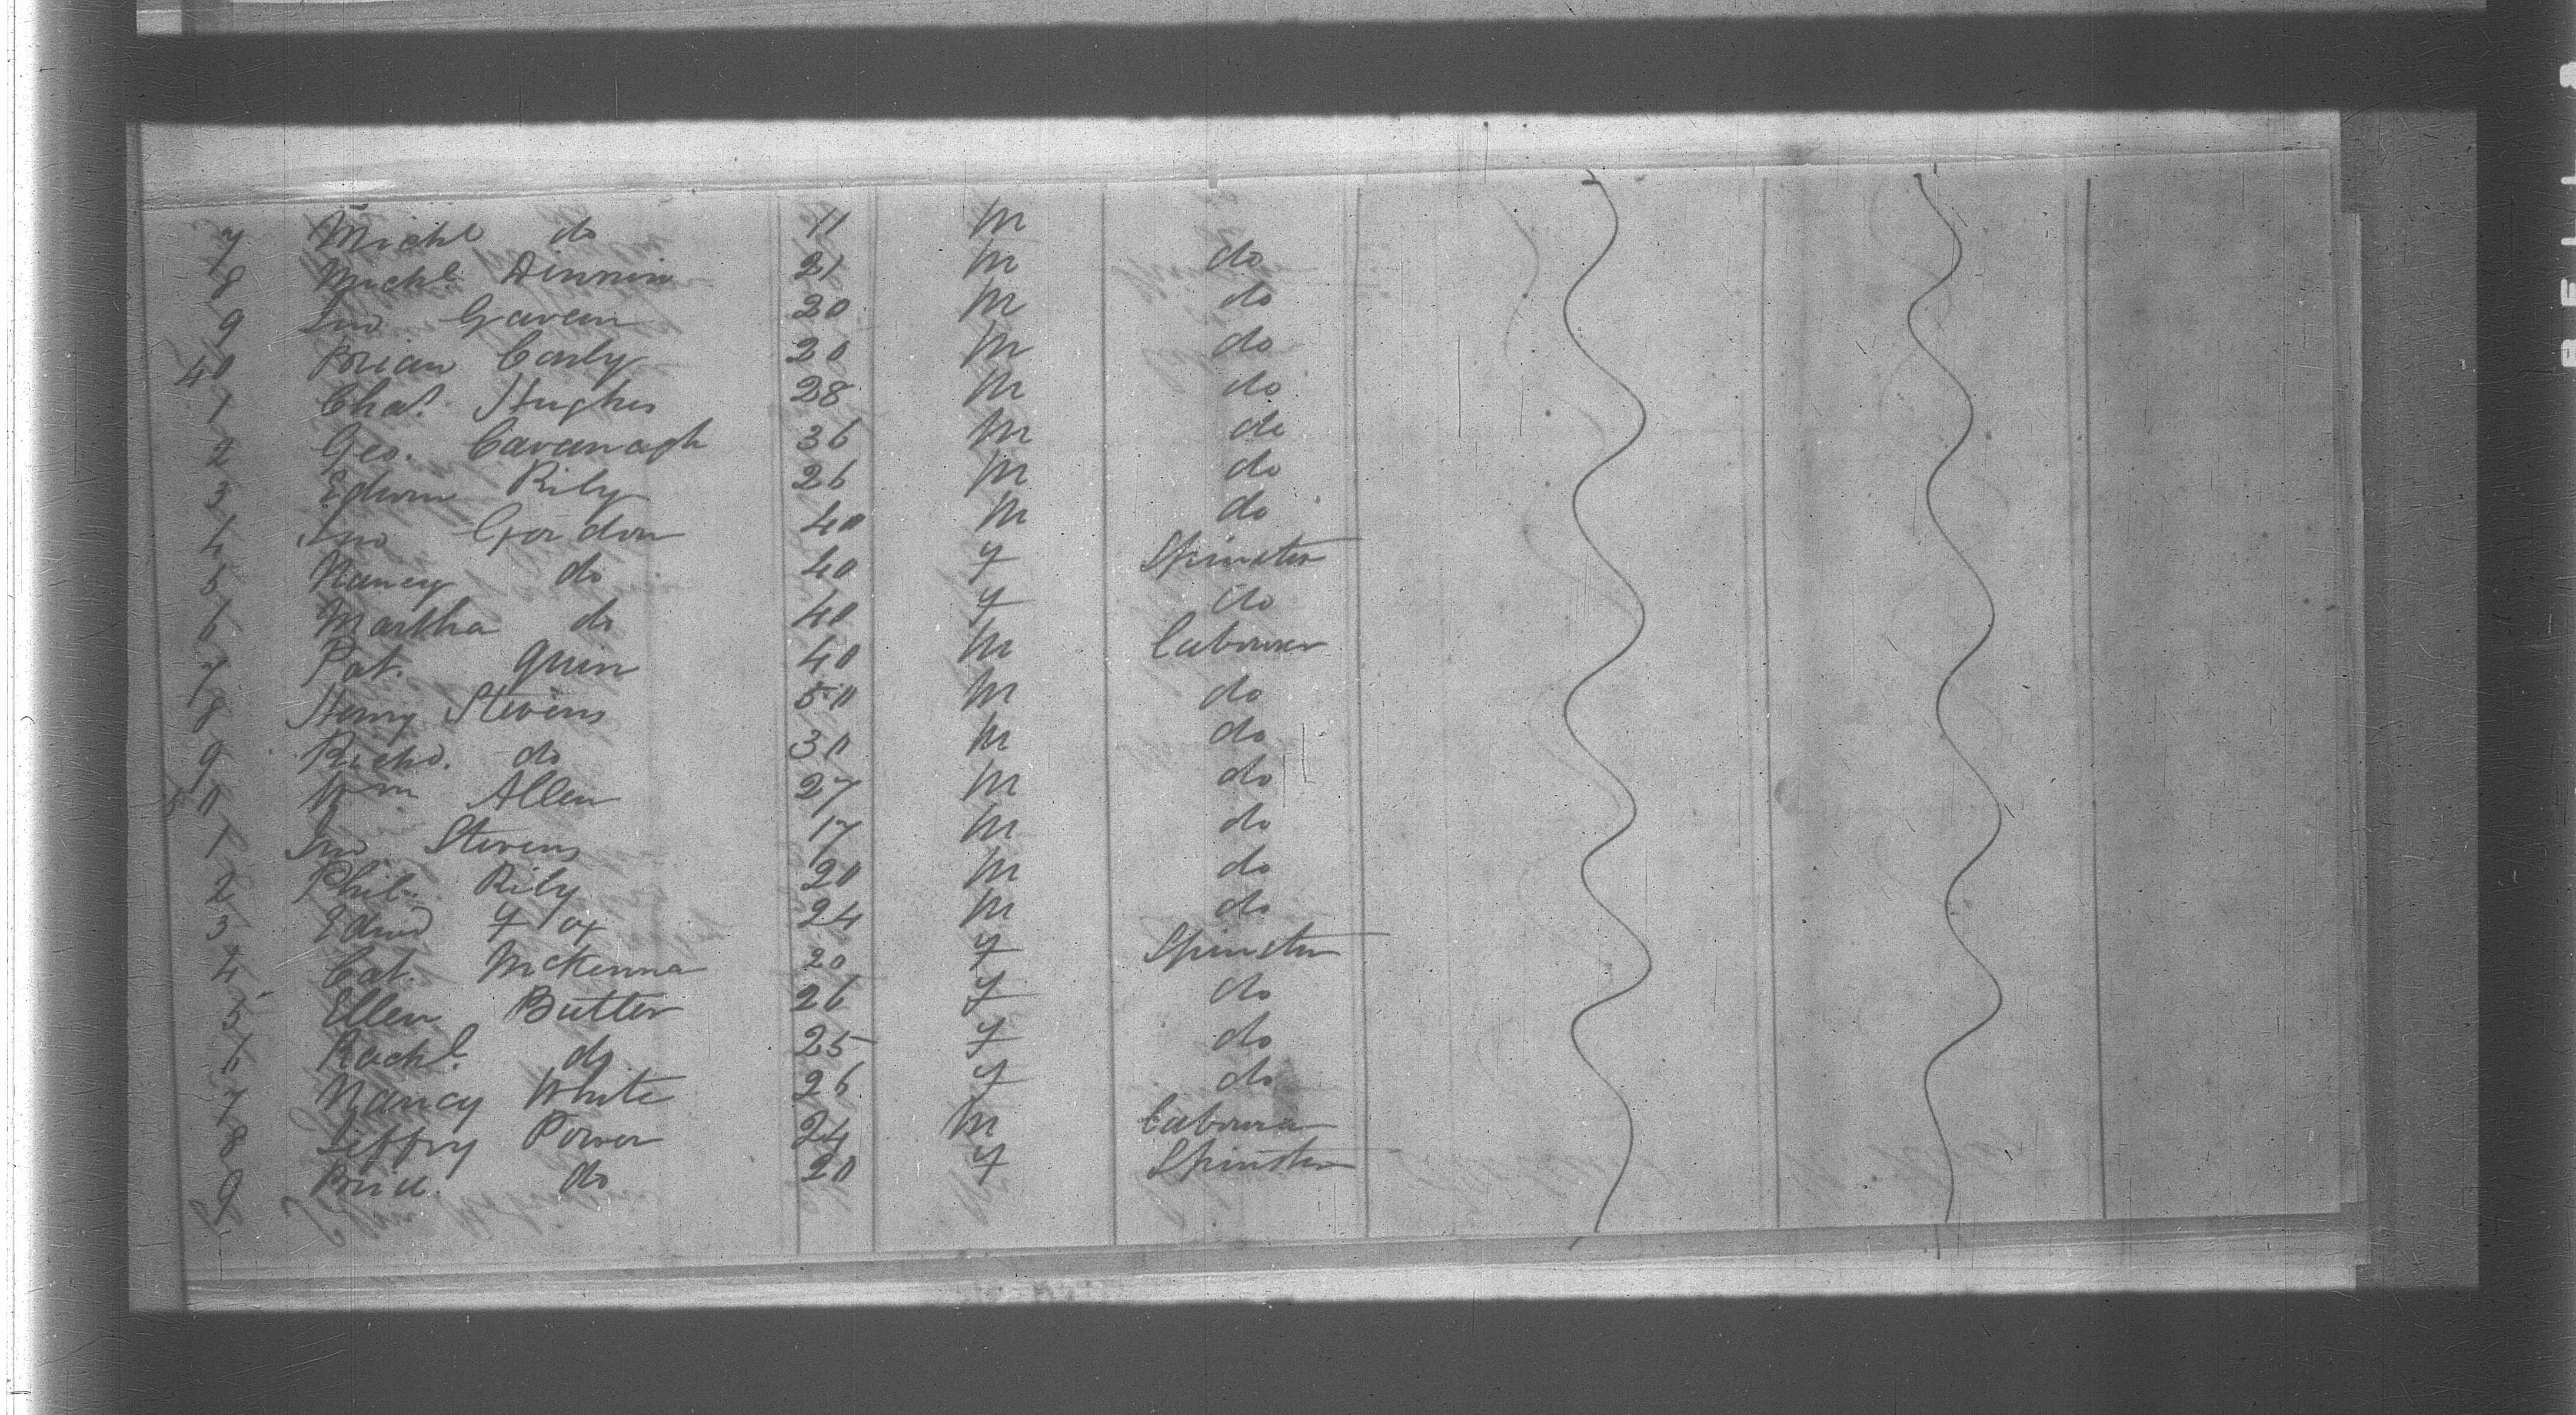 7 Michl do 11 M
8 Michl Dinnin 21 M do
9 Jno Gavan 20 M do
40 Brian Carly 20 M do
1 Chas. Hughes 28 M do
2 Geo. Cavanagh 36 M do
3 Edwin Rily 26 M do
4 Jno Gordon 40 M do
5 Nancy do 40 f Spinster
6 Martha do 40 f do
7 Pat. Quin 40 M Labourer
8 Henry Stevens 50 M do
9 Richd. do 30 M do
50 Wm Allen 27 M do
1 Jno Stevens 17 M do
2 Phil. Rily 20 M do
3 Edwd Fox 24 M do
4 Cat. McKenna 20 f Spinster
5 Ellen Butler 26 f do
6 Rachl. do 25 f do
7 Nancy White 26 f do
8 Jeffry Power 24 M Labourer
9 Brid. do 20 f Spinster